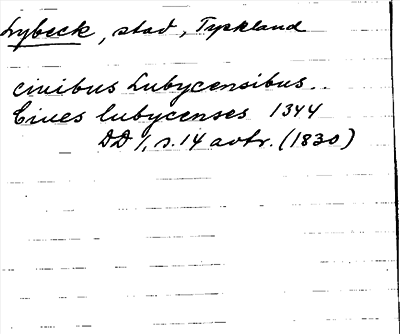 Lybeck, stad, Tyskland
civibus Lubycensibus..
Cives lubycenses 1344
DD 1, s. 14 avtr. (1830)